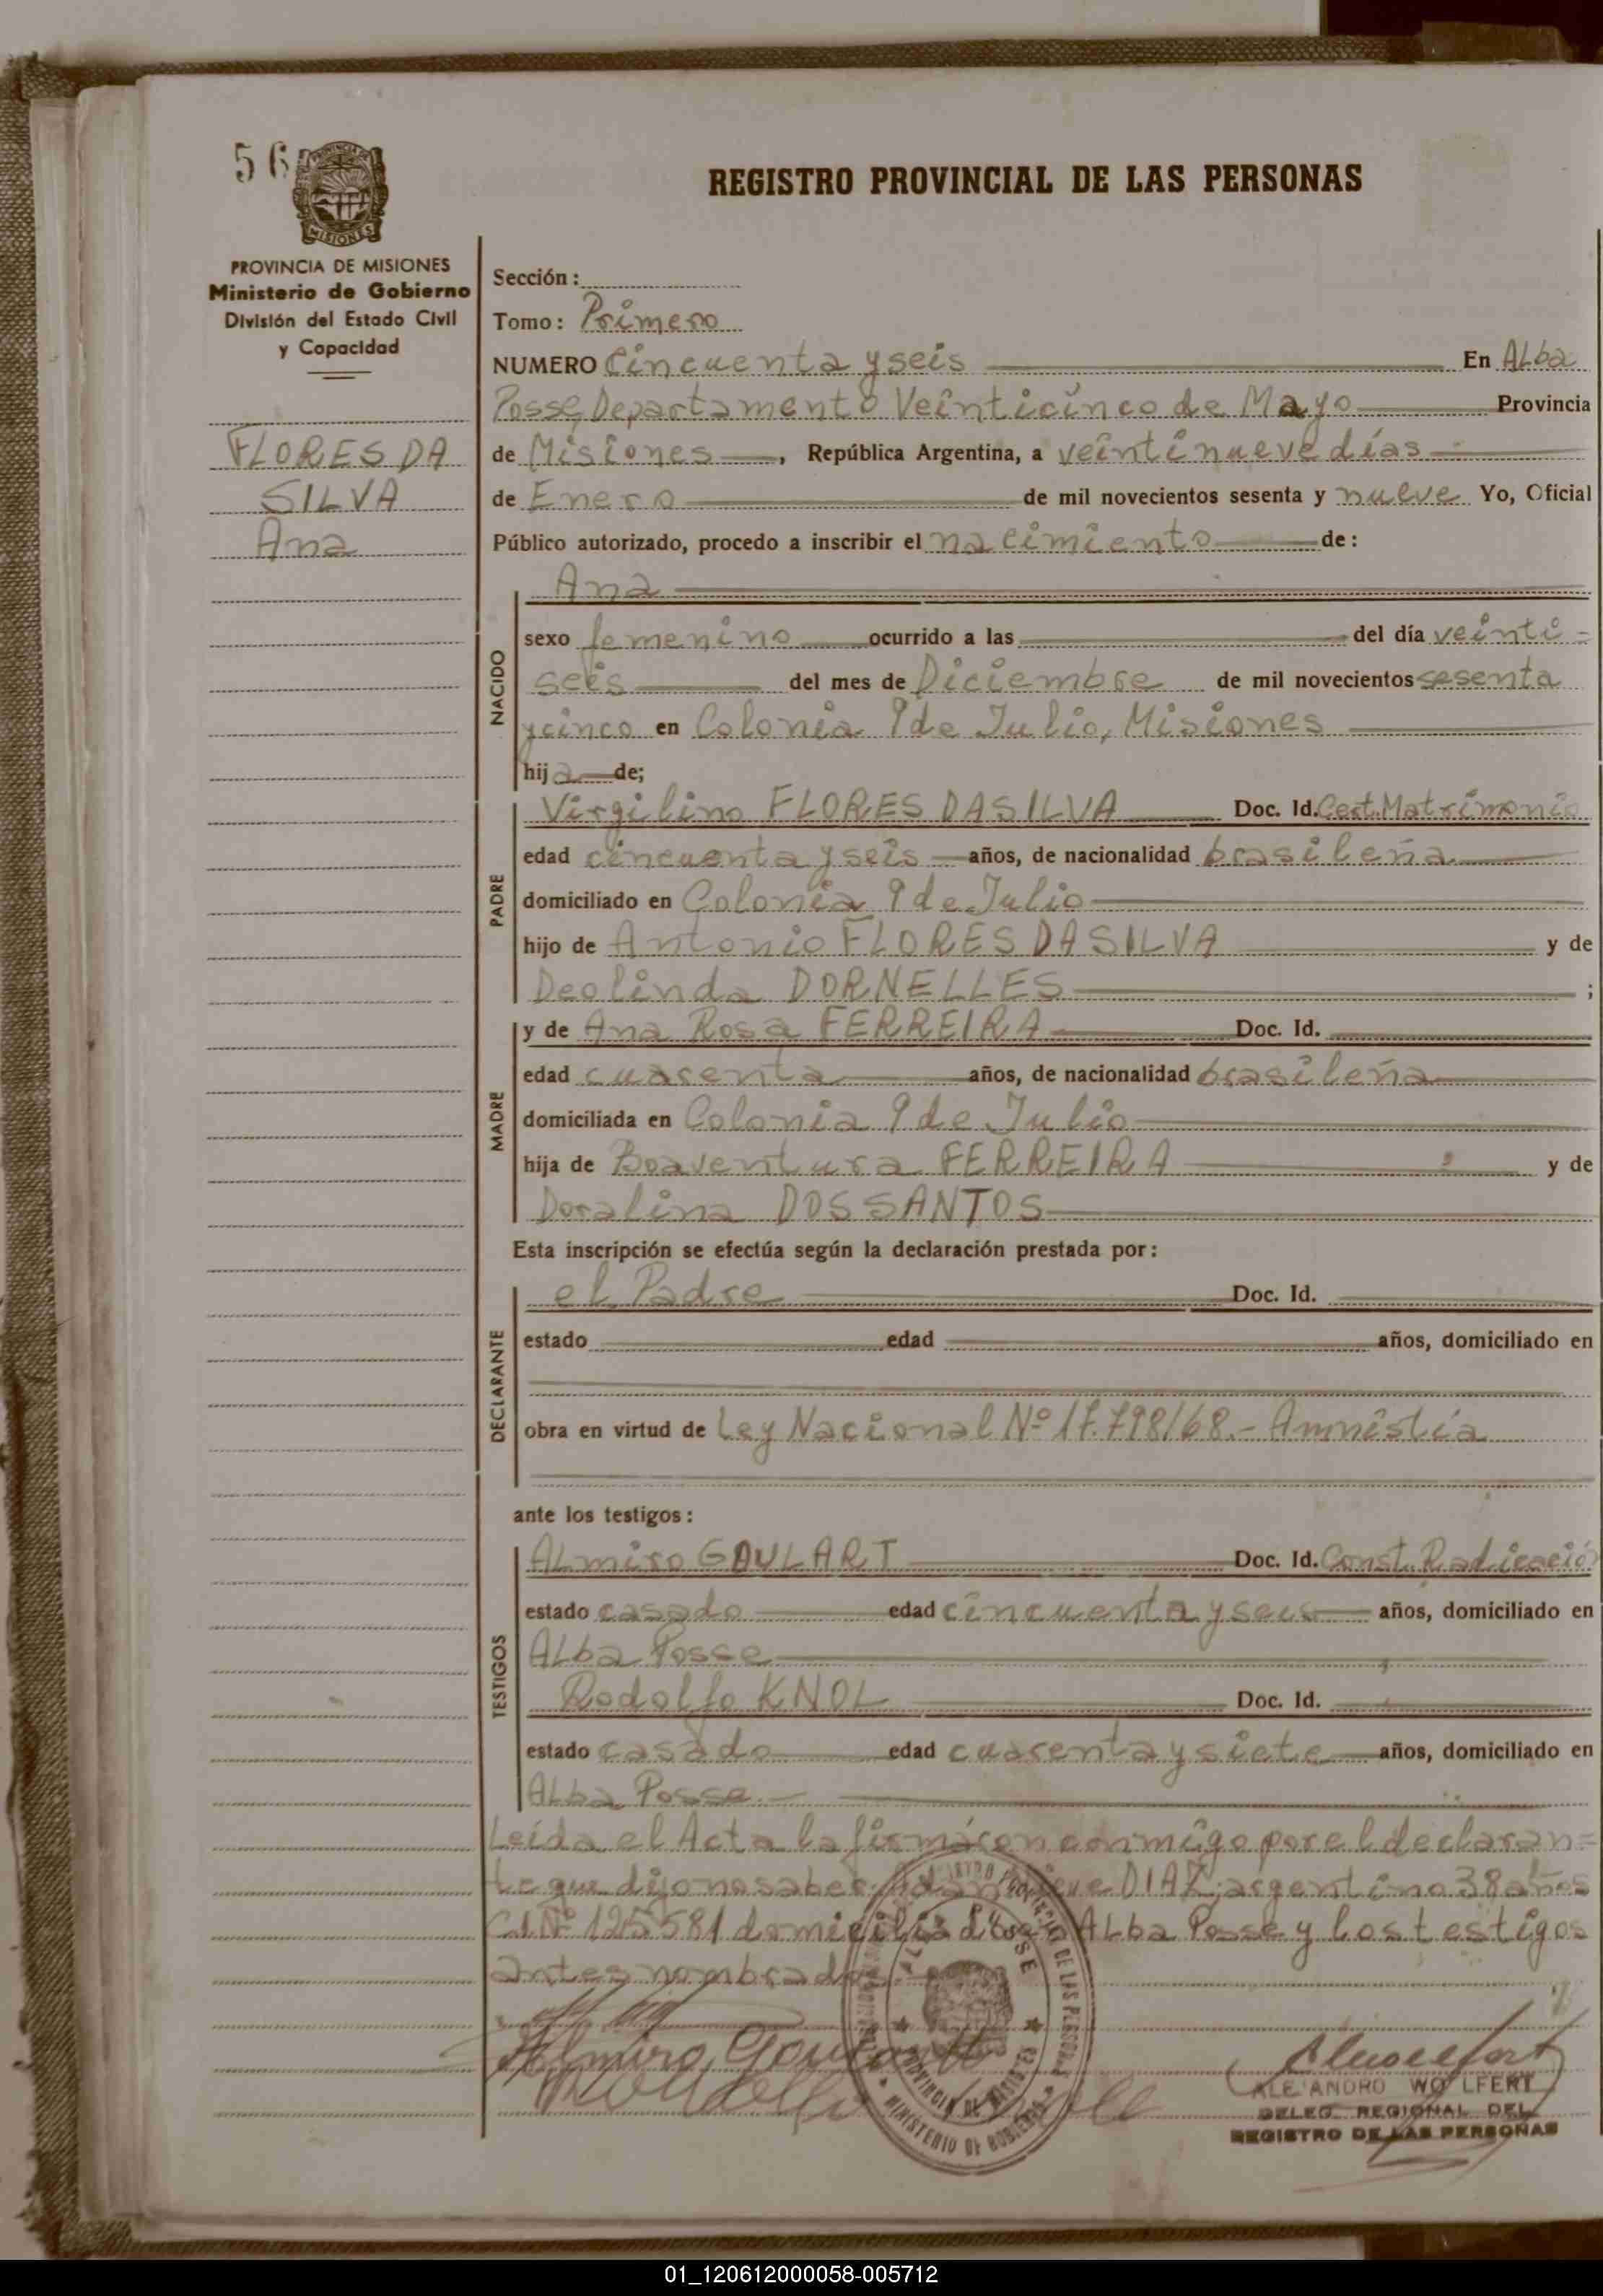 56
PROVINCIA DE MISIONES
MISIONES
PROVINCIA DE MISIONES
Ministerio de Gobierno
División del Estado Civil
y Capacidad
FLORES DA
SILVA
Ana
REGISTRO PROVINCIAL DE LAS PERSONAS
Sección:
Tomo: Primero
NUMERO Cincuenta y seis En ALba
Posse, Departamento Veinticinco de Mayo Provincia
de Misiones, República Argentina, a veintinueve días
de Enero de mil novecientos sesenta y nueve Yo, Oficial
Público autorizado, procedo a inscribir el nacimiento de:
Ana
NACIDO
sexo femenino ocurrido a las del día veinti=
seis del mes de Diciembre de mil novecientos sesenta
y cinco en Colonia 9 de Julio, Misiones
hija de;
PADRE
Virgilino FLORES DA SILVA Doc. Id. Cert. Matrimonio
edad cincuenta y seis años, de nacionalidad brasileña
domiciliado en Colonia 9 de Julio
hijo de Antonio FLORES DA SILVA y de
Deolinda DORNELLES ;
MADRE
y de Ana Rosa FERREIRA Doc. Id.
edad cuarenta años, de nacionalidad brasileña
domiciliada en Colonia 9 de Julio
hija de Boaventura FERREIRA y de
Doralina DOS SANTOS
Esta inscripción se efectúa según la declaración prestada por:
DECLARANTE
el Padre Doc. Id.
estado edad años, domiciliado en
obra en virtud de Ley Nacional Nº 17.798/68.- Amnistía
ante los testigos:
TESTIGOS
ALmiro GOULART Doc. Id. Const. Radicación
estado casado edad cincuenta y seis años, domiciliado en
ALba Posse
Rodolfo KNOL Doc. Id.
estado casado edad cuarenta y siete años, domiciliado en
ALba Posse.-
Leída el Acta la firmáron conmigo por el declaran=
te que dijo no saber DIAZ, argentino 38 años
C.I.Nº 125581 domiciliado en ALba Posse y los testigos
antes nombrados.-
Almiro Goulart
ALEJANDRO WOLFERT
DELEG. REGIONAL DEL
REGISTRO DE LAS PERSONAS
PROVINCIA DE MISIONES
MINISTERIO DE GOBIERNO
01_120612000058-005712